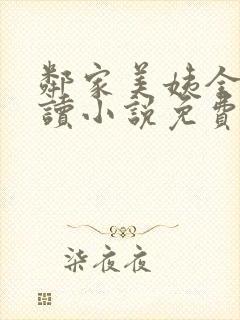 鄰家美姨全
讀小說免費
柒夜夜